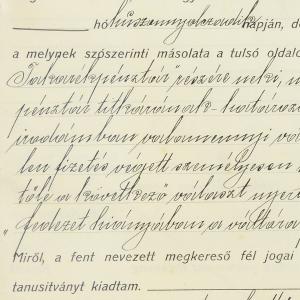 hó huszonnyolcadik napján, d
a melynek szószerinti másolata a tulsó oldalo
Takarékpénztár" részére neki, m
pénztár titkárának - határozo
irodámban valamennyi vál
len fizetés végett személyesen
tőle a következő választ nyer
„fedezet hiányában a váltóra
Miről, a fent nevezett megkereső fél jogai
tanusitványt kiadtam.